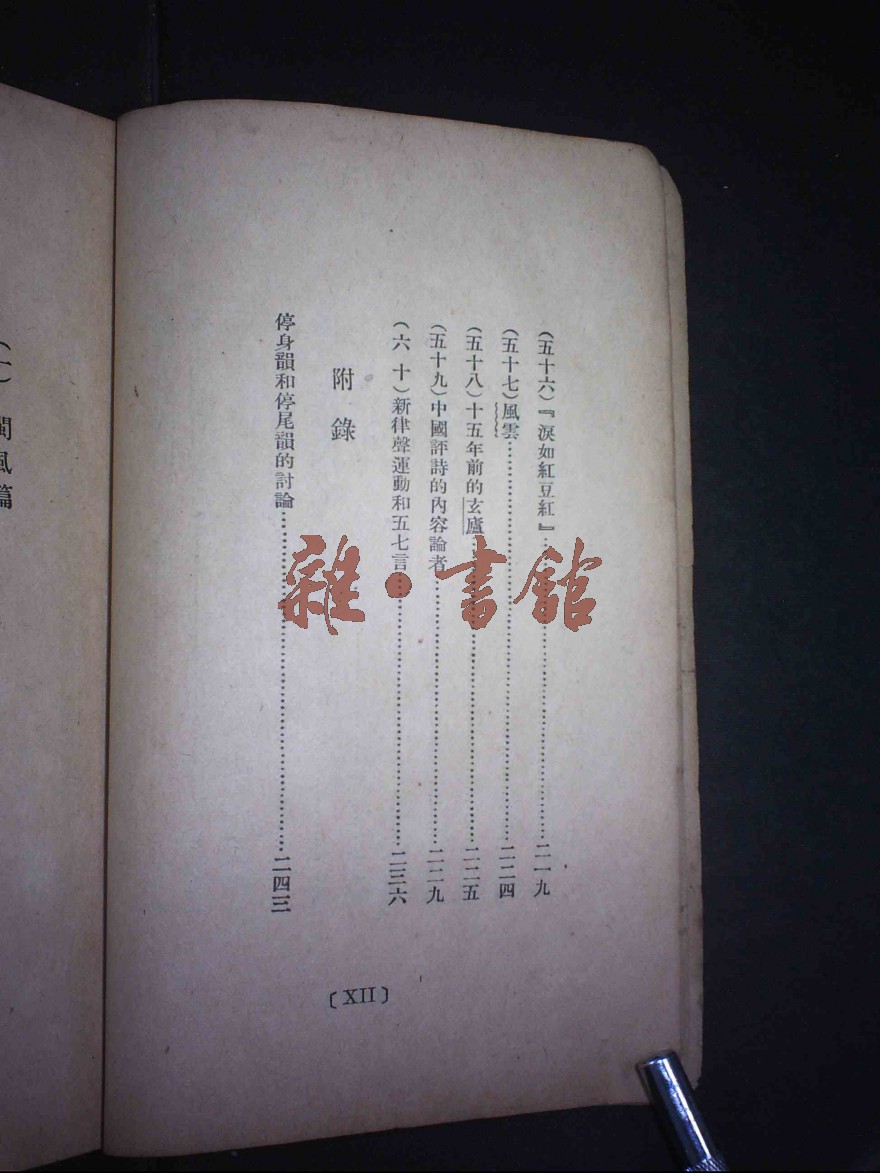 （五十六）『淚如紅豆紅』……二一九
（五十七）風雲……二二四
（五十八）十五年前的玄廬……二二五
（五十九）中國評詩的內容論者……二二九
（六十）新律聲運動和五七言……二三六
附錄
停身韻和停尾韻的討論……二四三
〔XII〕
雜·書館
風篇